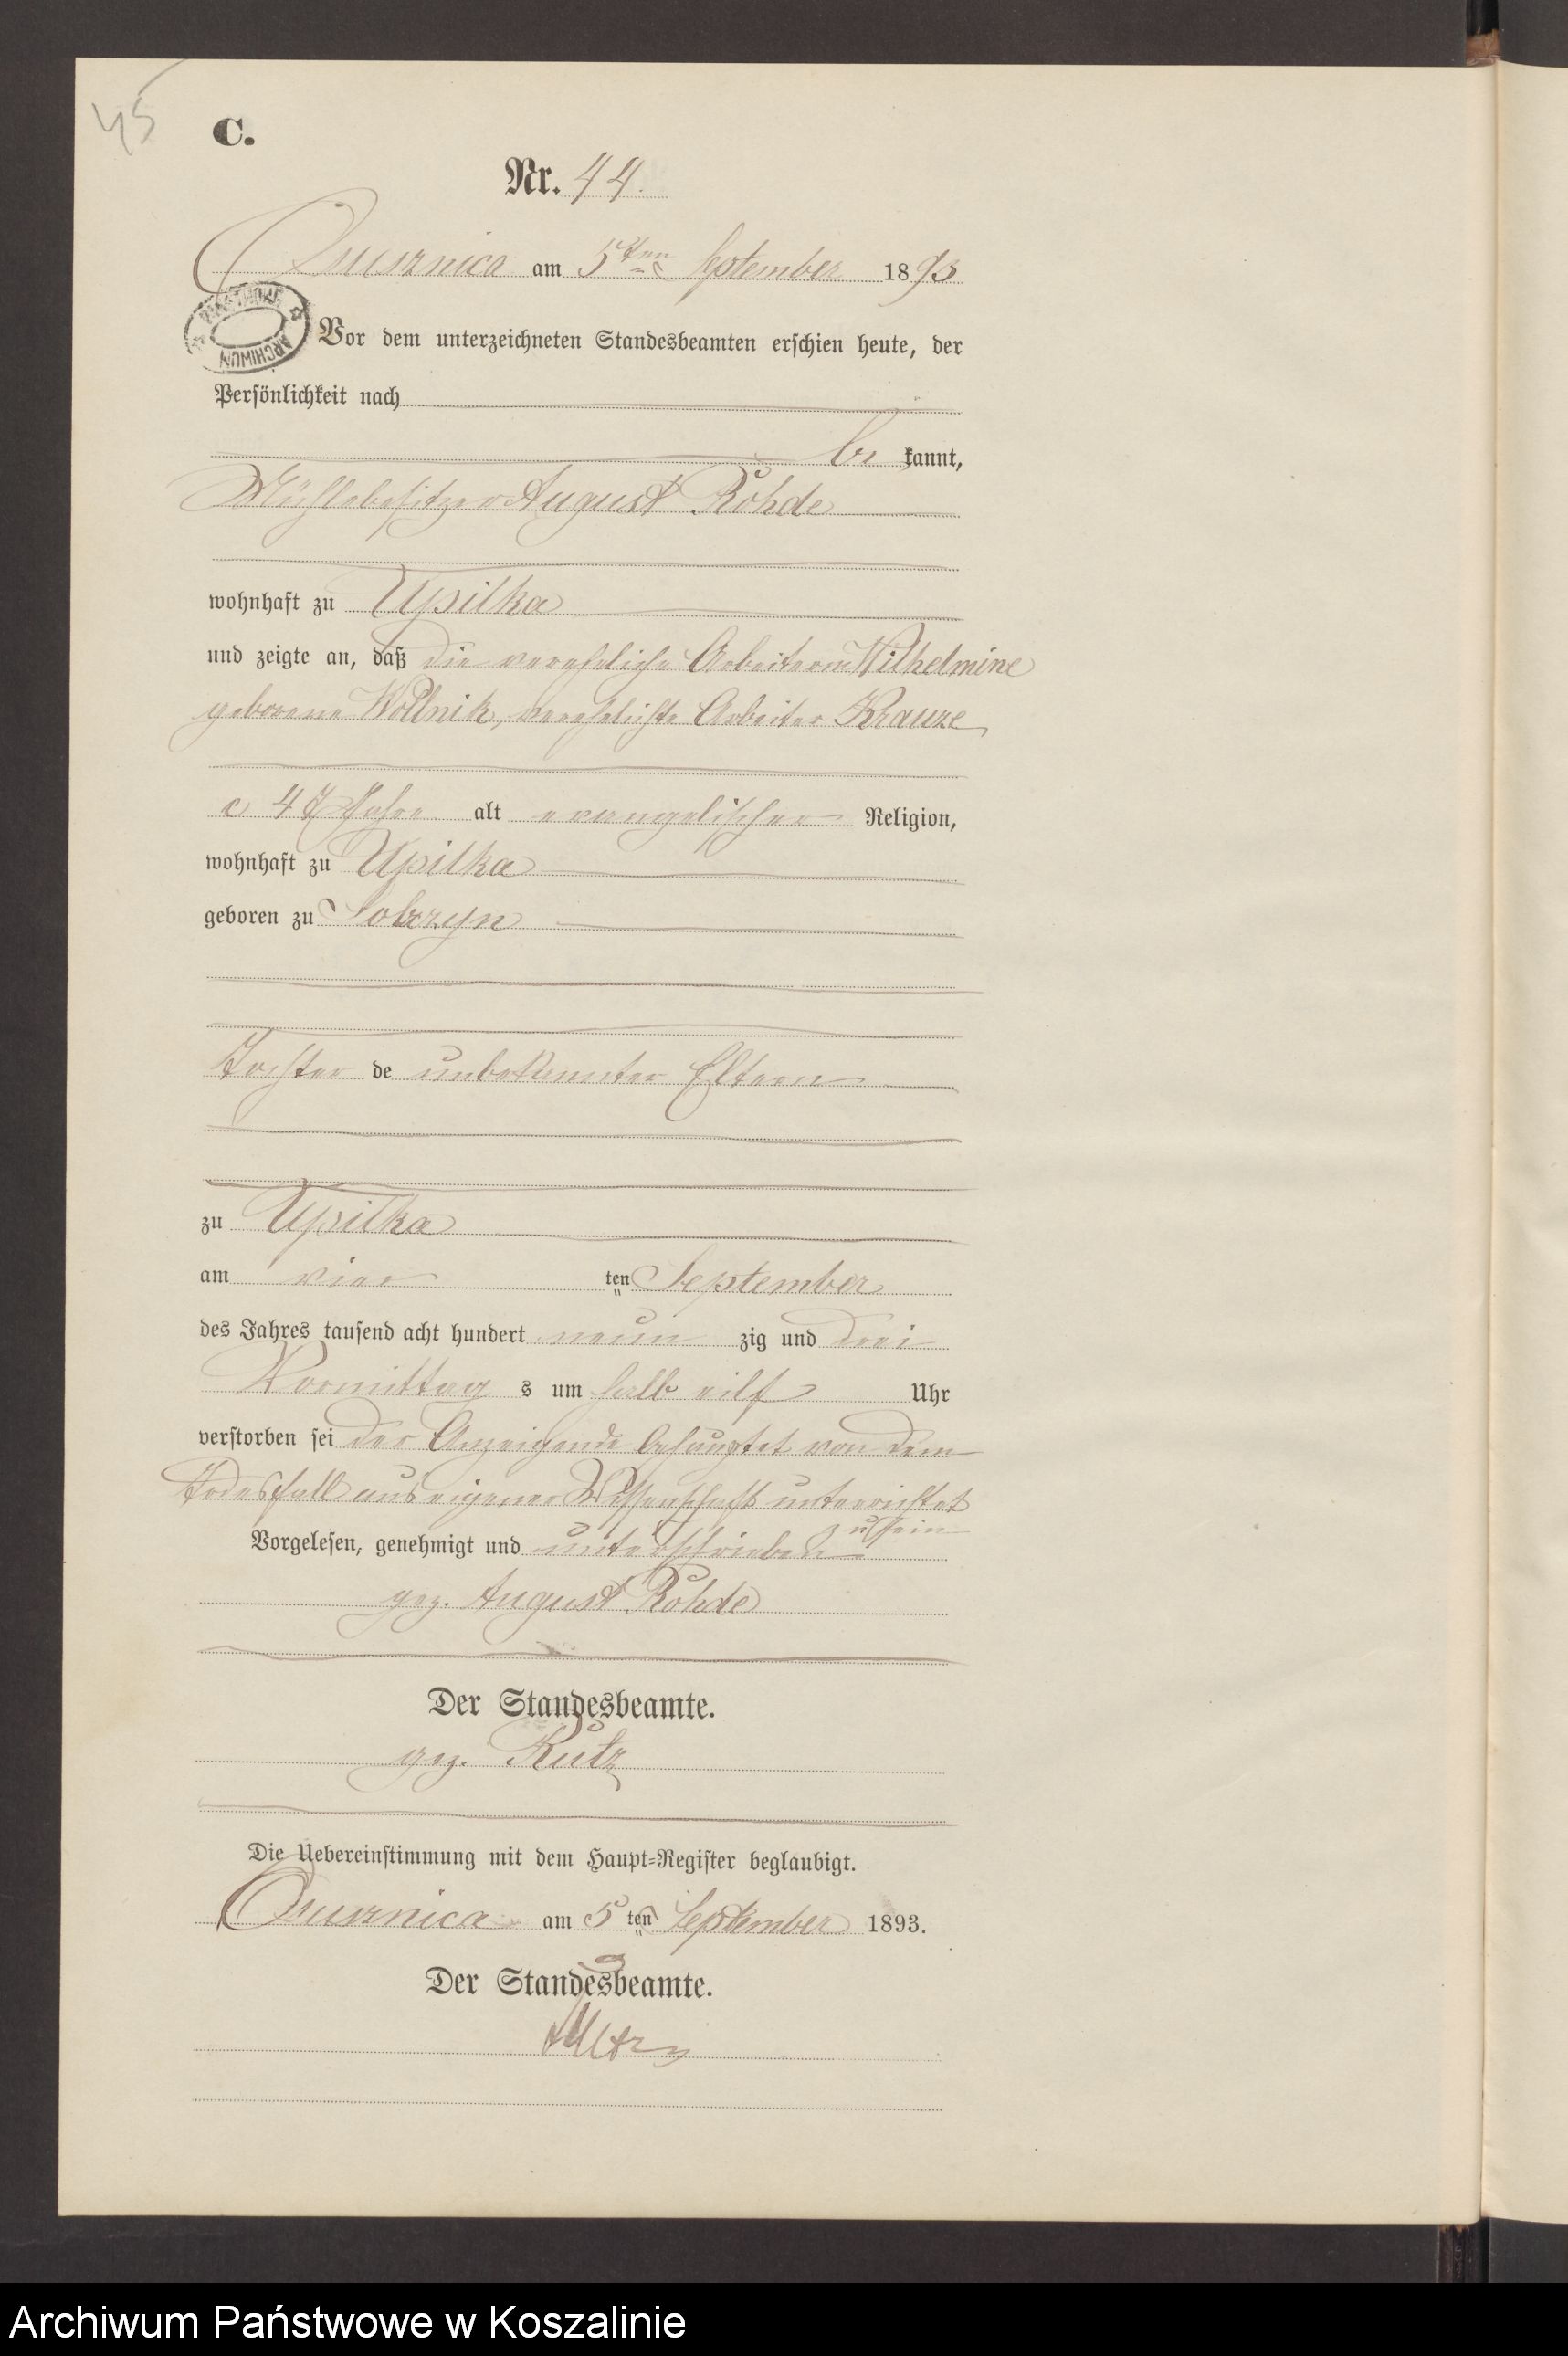 45
C.
Nr. 44.
am 5ten September 1893
PAŃSTWOWE ARCHIWUM
Vor dem unterzeichneten Standesbeamten erschien heute, der
Persönlichkeit nach
be kannt,
Mühlebesitzer August Rohde
wohnhaft zu Upilka
und zeigte an, daß die verehelichte Arbeiterin Wilhelmine
geborene Wollnik, verehelichte Arbeiter Krauze
c 47 Jahre alt evangelischer Religion,
wohnhaft zu Upilka
geboren zu
Tochter de unbekannter Eltern
zu Upilka
am vier ten September
des Jahres tausend acht hundert neun zig und drei
Vormittag s um halb eilf Uhr
verstorben sei der Anzeigende behauptet von dem
Todesfall aus eigener Wissenschaft unterrichtet
zu sein
Vorgelesen, genehmigt und unterschrieben
gez. August Rohde
Der Standesbeamte.
gez. Kutz
Die Uebereinstimmung mit dem Haupt-Register beglaubigt.
am 5 ten September 1893.
Der Standesbeamte.
Archiwum Państwowe w Koszalinie